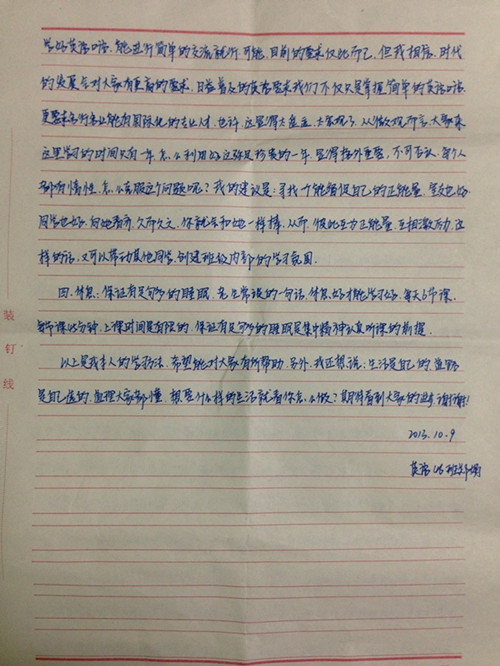 学好英语口语，能进行简单的交流就行。可能，目前的要求仅此而已，但我相信，时代
的发展会对大家有更高的要求，日益普及的英语要求我们不仅只是掌握简单的英语口语，
更要求各行各业能有国际化的专业人才。也许，这显得太遥远，大家现，从微观而言，大家来
这里学习的时间只有一年，怎么利用好这弥足珍贵的一年显得格外重要，不可否认，每个人
都有惰性，怎么克服这个问题呢？我的建议是：寻找一个能督促自己的正能量，室友也好，
同学也好，向她看齐，久而久之，你就会和她一样棒，从而，彼此互为正能量，互相激励，这
样的话，又可以带动其他同学，创建班级内部的学习氛围。
四、休息：保证有足够的睡眠，老生常谈的一句话，休息好才能学习好，每天6节课，
每节课45分钟，上课时间是有限的，保证有足够的睡眠是集中精神认真听课的前提。
以上是我本人的学习方法，希望能对大家有所帮助。另外，我还想说：生活是自己的，
是自己选的，道理大家都懂，想要什么样的生活就看你怎么做？期待看到大家的进步，谢谢！
2013.10.9
英语 班
装
钉
线